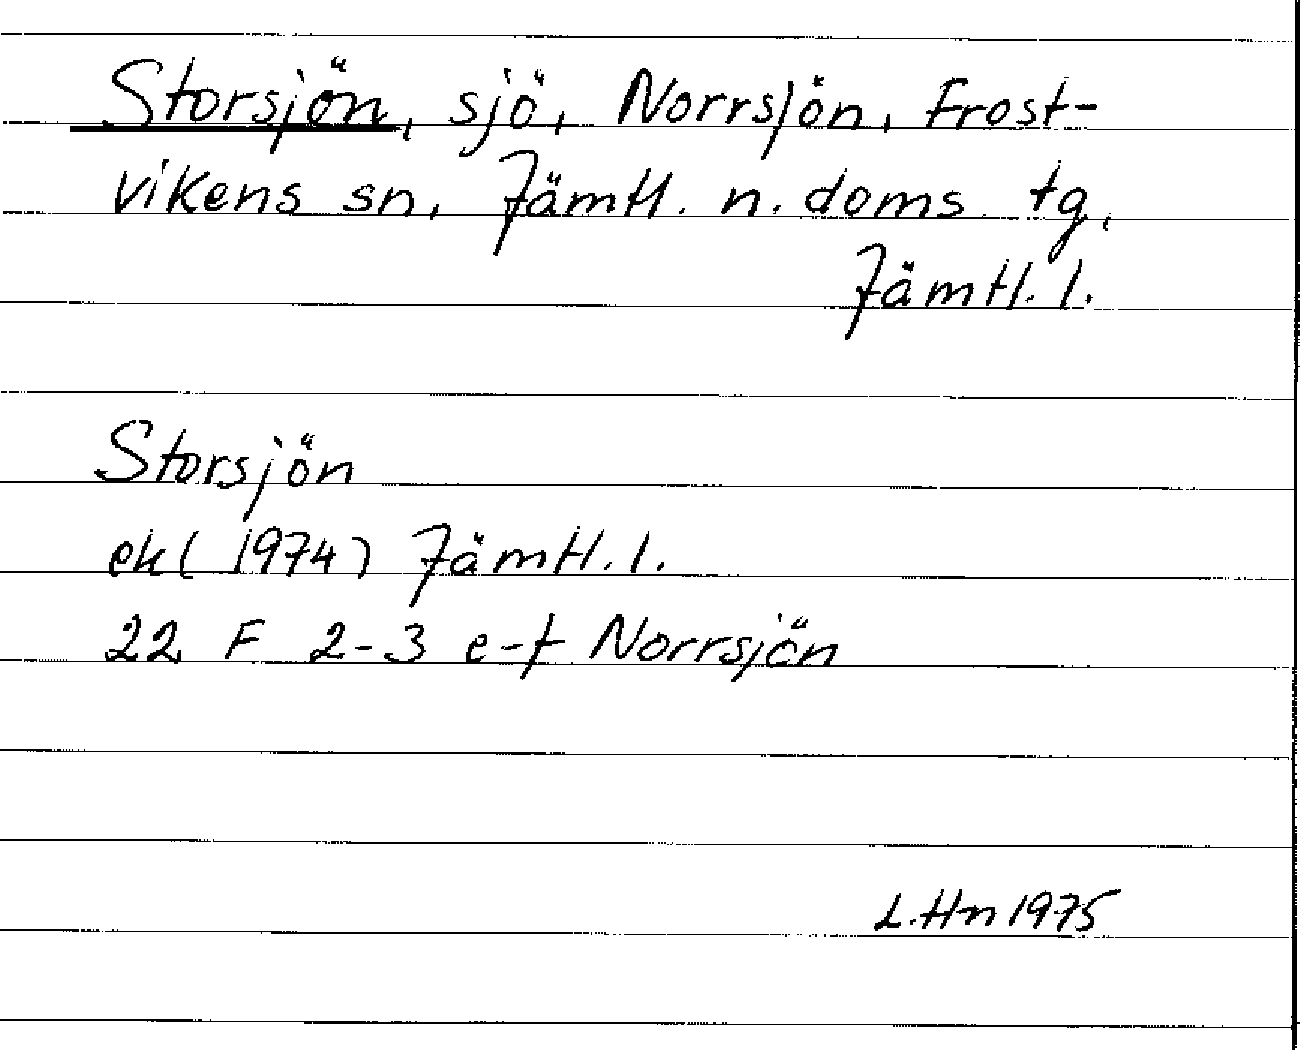 Storsjön, sjö, Norrsjön, Frost-
vikens sn, Jämtl. n. doms. tg,
Jämtl. l.
Storsjön
ek (1974) Jämtl. l.
22 F 2-3 e-f Norrsjön
L.Hn 1975